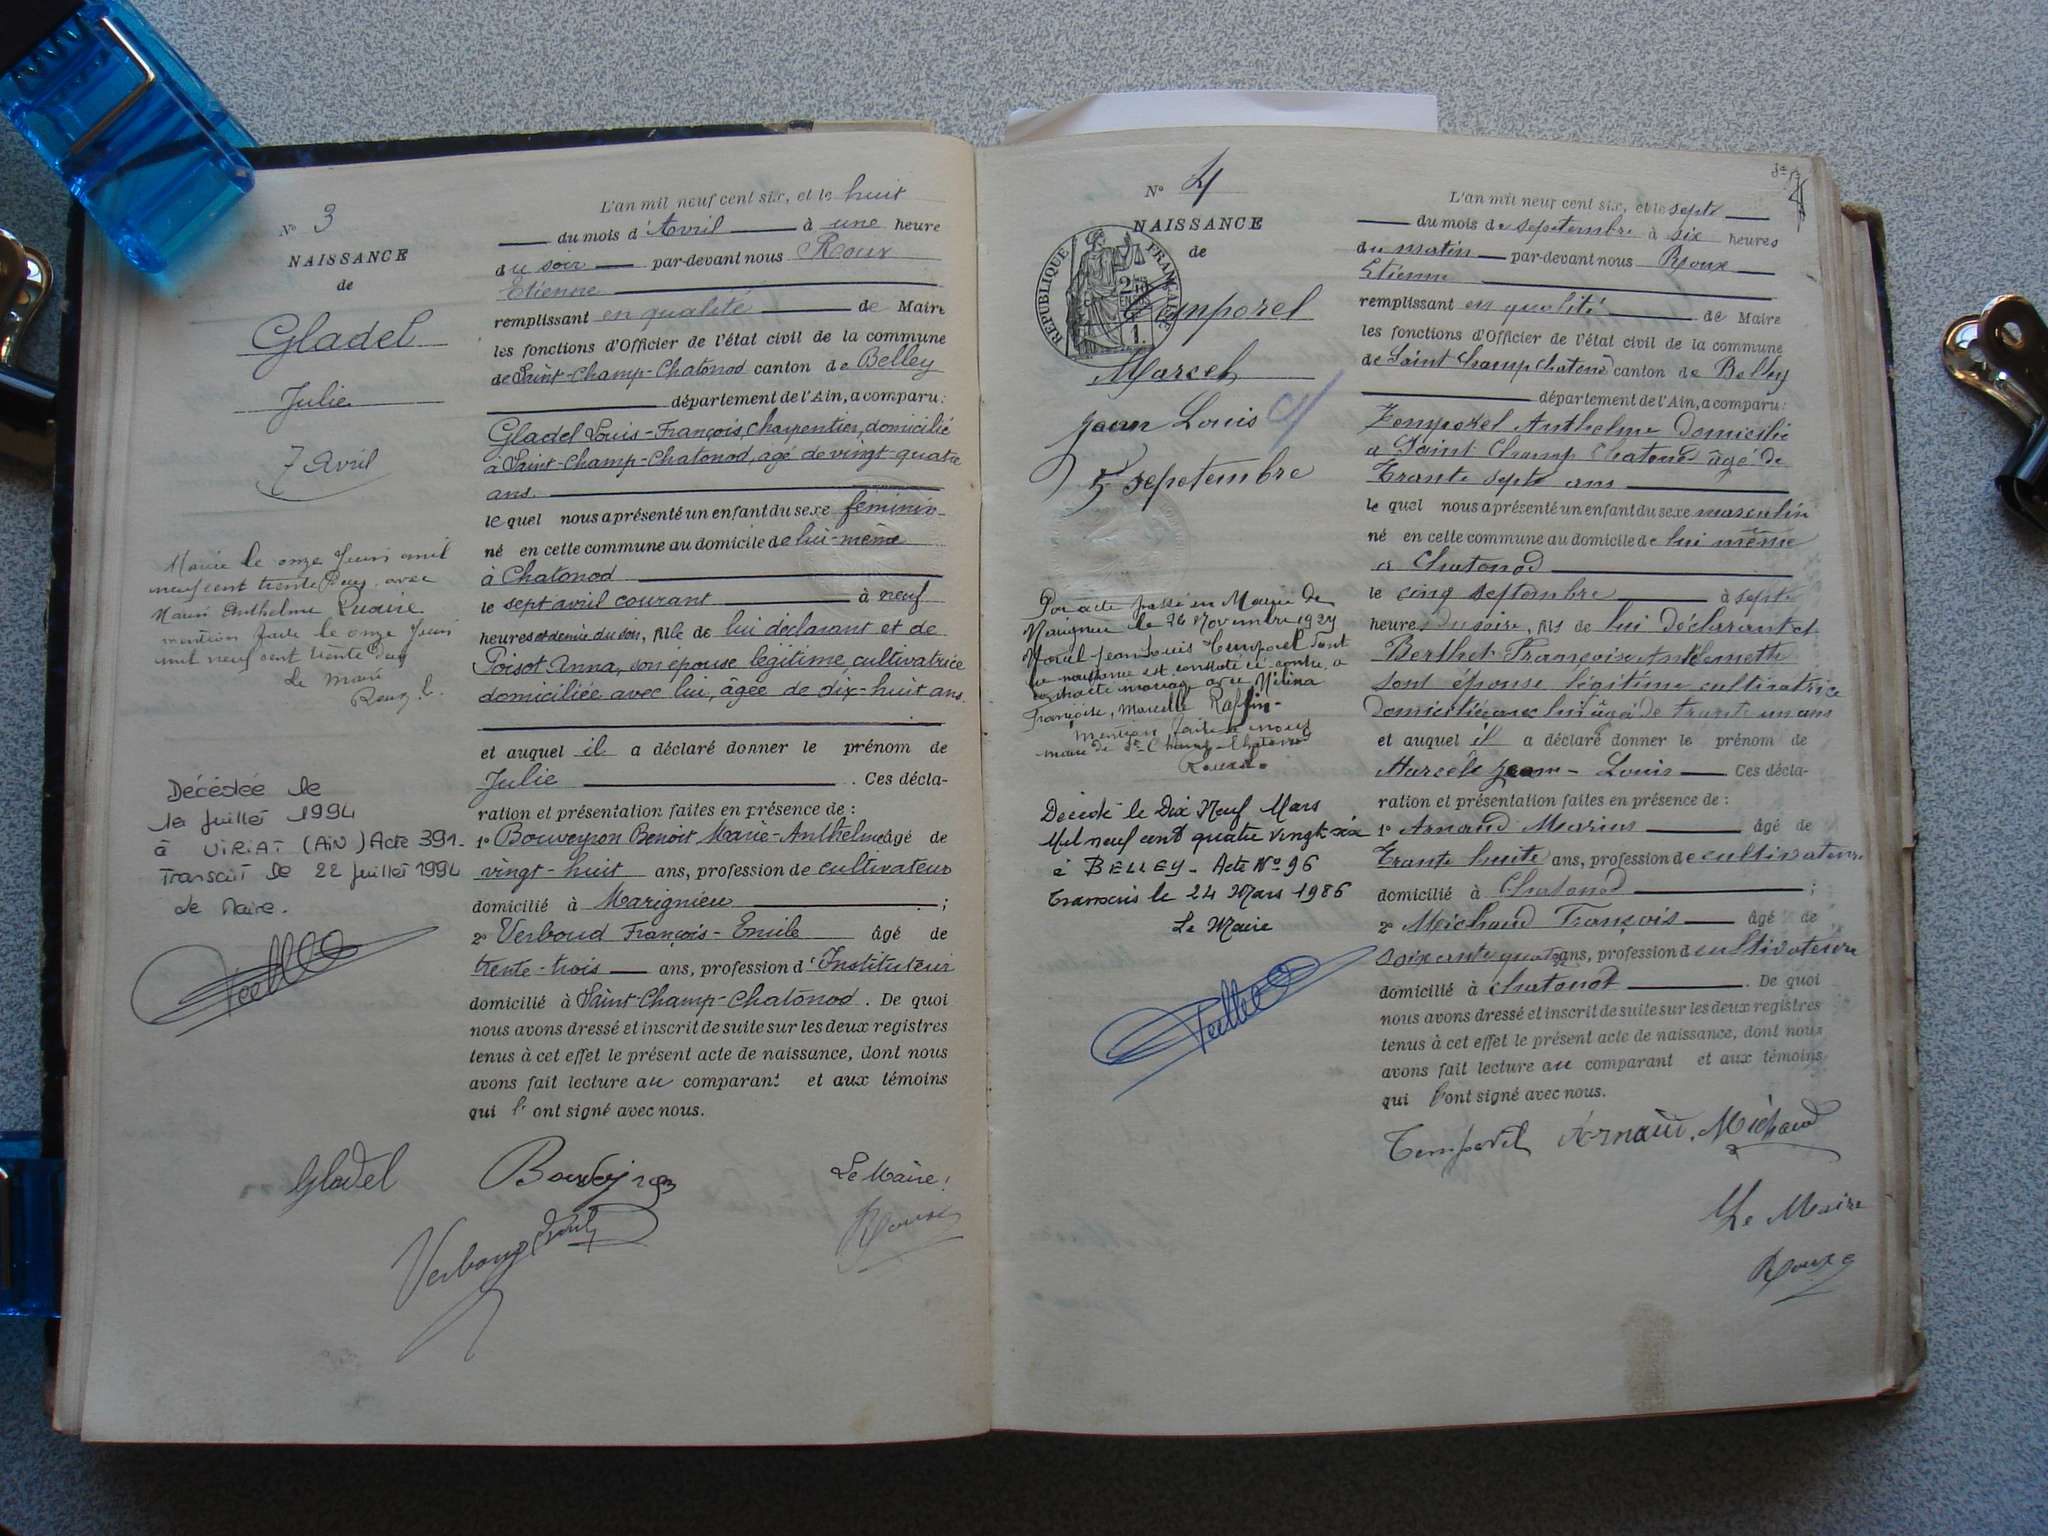 N° 3
NAISSANCE
de
Gladel
Julie
7 Avril
Mariée le onze Juin mil
neuf cent trente Deux avec
Marin Anthelme
mention faite le onze Juin
mil neuf cent trente deux
Le maire
Décédée le
1er Juillet 1994
à VIRIAT (AIN) Acte 391.
Transcrit le 22 Juillet 1994
Le Maire.
L'an mil neuf cent six, et le huit
du mois d'Avril à une heure
du soir par-devant nous Roux
Etienne
remplissant en qualité de Maire
les fonctions d'Officier de l'état civil de la commune
de Saint-Champ-Chatonod canton de Belley
département de l'Ain, a comparu:
Gladel Louis-François, Charpentier, domicilié
à Saint-Champ-Chatonod, âgé de vingt-quatre
ans.
le quel nous a présenté un enfant du sexe féminin
né en cette commune au domicile de lui-même
à Chatonod
le sept avril courant à neuf
heures et demie du soir, fille de lui déclarant et de
Poisot Anna, son épouse légitime, cultivatrice
domiciliée avec lui, âgée de dix-huit ans.
et auquel il a déclaré donner le prénom de
Julie . Ces décla-
ration et présentation faites en présence de :
1° Bouveyron Benoit Marie-Anthelme âgé de
vingt-huit ans, profession de cultivateur
domicilié à Marignieu ;
2° Verboud François-Emile âgé de
trente-trois ans, profession d'Instituteur
domicilié à Saint-Champ-Chatonod . De quoi
nous avons dressé et inscrit de suite sur les deux registres
tenus à cet effet le présent acte de naissance, dont nous
avons fait lecture au comparant et aux témoins
qui l'ont signé avec nous.
Gladel Bouveyron Le Maire :
Roux
N° 4
NAISSANCE
de
REPUBLIQUE FRANÇAISE
Temporel
Marcel
Jean Louis
5 sepetembre
Par acte passé en Mairie de
Marignieu le 26 Novembre 1927
Marcel-Jean-Louis Temporel dont
la naissance est constatée ci-contre, a
contracté mariage avec Mélina
Françoise, Marcelle Raffin-
mention faite par nous
maire de St Champ-Chatonod
Roux
Décédé le Dix Neuf Mars
Mil neuf cent quatre vingt six
à BELLEY - Acte N° 96
Transcris le 24 Mars 1986
Le Maire
L'an mil neuf cent six, et le septe
du mois de sepetembre à six heures
du matin par-devant nous Roux
Etienne
remplissant en qualité de Maire
les fonctions d'Officier de l'état civil de la commune
de Saint Champ Chatonod canton de Belley
département de l'Ain, a comparu:
Temporel Anthelme Domicilié
a Saint Champ Chatonod âgé de
Trante septe ans
le quel nous a présenté un enfant du sexe masculin
né en cette commune au domicile de lui même
a Chatonod
le cinq septembre à septe
heures du soire, fils de lui déclarant et
Berthet Françoise
sont épouse légitime cultivatrice
Domiciliée avec lui âgé de trante un ans
et auquel il a déclaré donner le prénom de
Marcel Jean-Louis Ces décla-
ration et présentation faites en présence de :
1° Arnaud Marius âgé de
Trante huite ans, profession de cultivateure
domicilié à Chatonod ;
2° Meichaud François âgé de
soixante quatre ans, profession de cultivateure
domicilié à chatonod . De quoi
nous avons dressé et inscrit de suite sur les deux registres
tenus à cet effet le présent acte de naissance, dont nous
avons fait lecture au comparant et aux témoins
qui l'ont signé avec nous.
Temporel Arnaud. Michaud
Le Maire
Roux